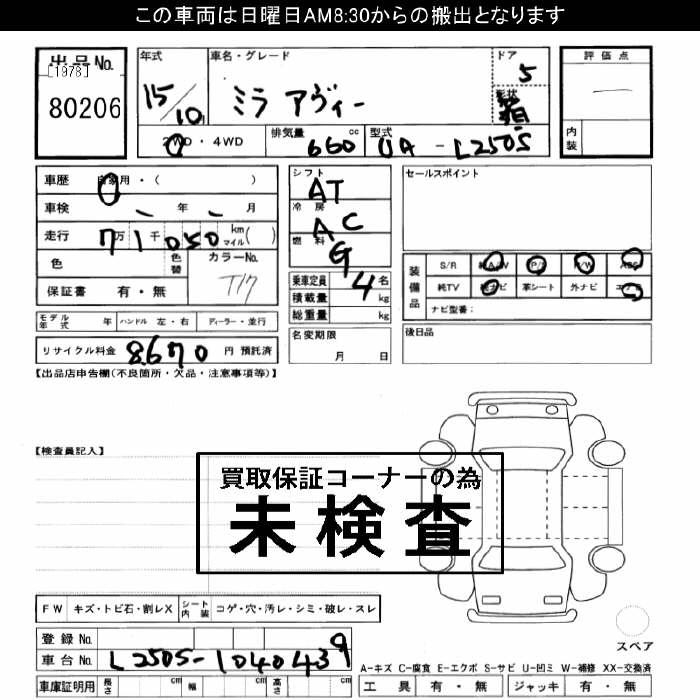 この車両は日曜日AM8:30からの搬出となります
出品No.
[1978]
80206
年式
15/10
車名・グレード
ミラ アヴィー
ドア
5
形状
箱
評価点
内装
2WD・4WD
排気量
660 cc
型式
UA - L250S
車歴 自家用・( )
車検 年 月
走行 7万1千050 km マイル( )
色
色替
カラーNo.
T17
保証書 有・無
シフト
AT
冷房
AC
燃料
G
乗車定員 4名
積載量 kg
総重量 kg
セールスポイント
装備品
S/R 純A/W P/S P/W ABS
純TV 純ナビ 革シート 外ナビ エアB
ナビ型番:
モデル年式 年 ハンドル 左・右 ディーラー・並行
リサイクル料金 8670 円 預託済
名変期限
月 日
後日品
【出品店申告欄(不良箇所・欠品・注意事項等)】
【検査員記入】
買取保証コーナーの為
未検査
FW キズ・トビ石・割レX シート内装 コゲ・穴・汚レ・シミ・破レ・スレ
登録No.
車台No. L250S-1040439
車庫証明用 長さ cm 幅 cm 高さ cm
スペア
A-キズ C-腐食 E-エクボ S-サビ U-凹ミ W-補修 XX-交換済
工具 有・無 ジャッキ 有・無